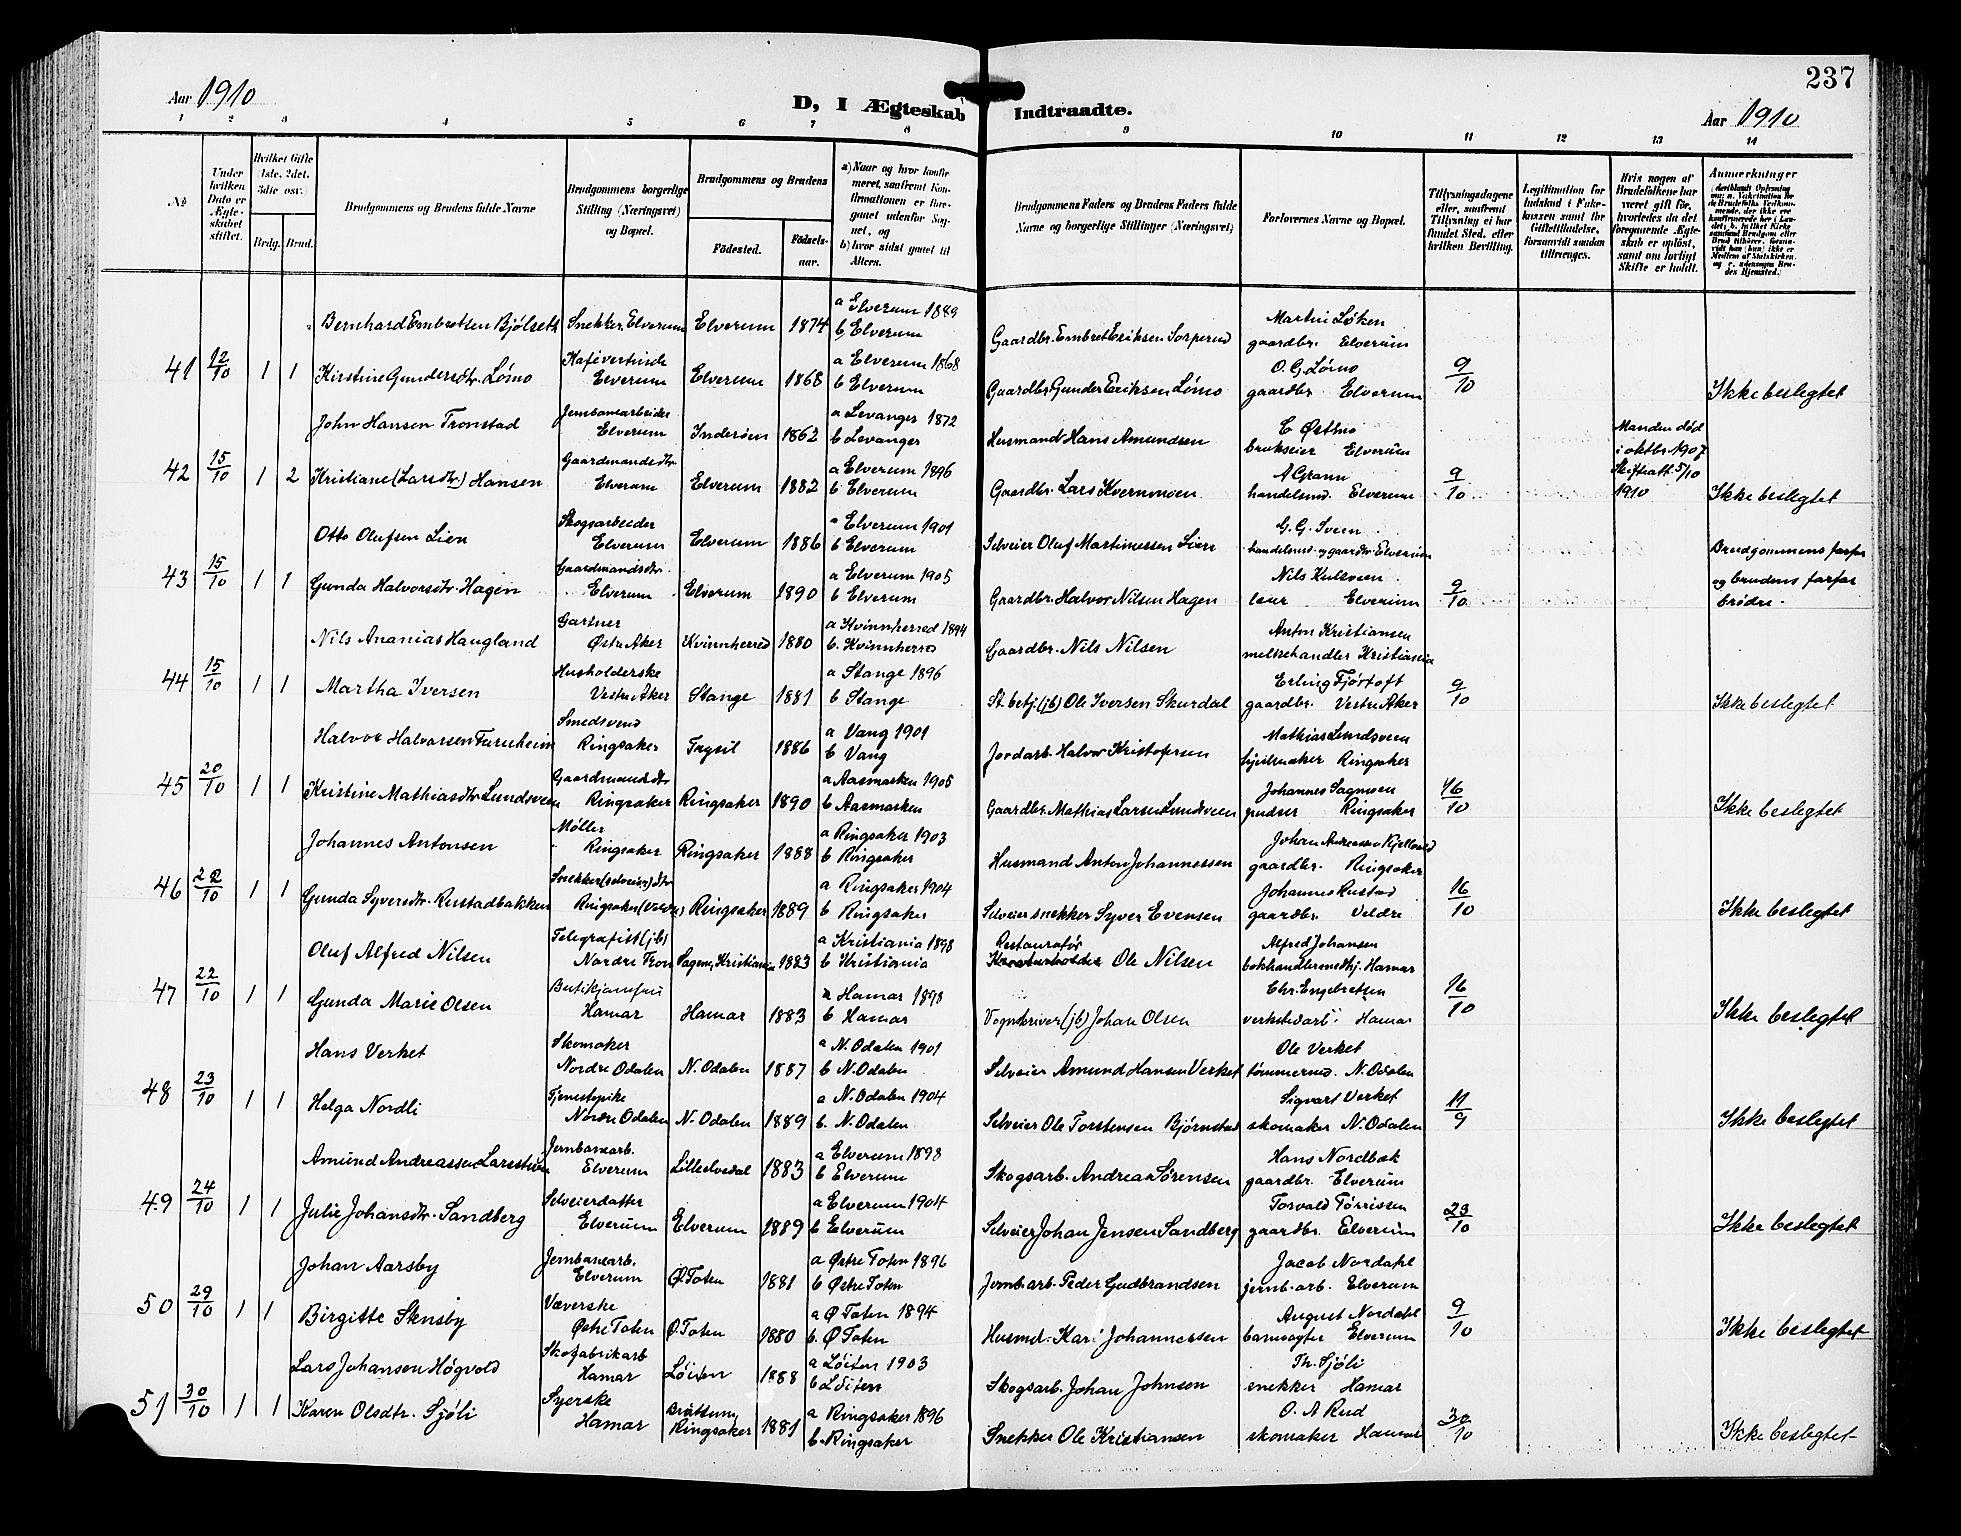 237
Aar 1910
D, I Ægteskab Indtraadte.
Aar 1910
1 2 3 4 5 6 7 8 9 10 11 12 13 14
No
Under hvilken Dato er Ægteskabet stiftet.
Hvilket Gifte 1ste, 2det, 3die osv.
Brdg. Brud.
Brudgommens og Brudens fulde Navne
Brudgommens borgerlige Stilling (Næringsvei) og Bopæl.
Brudgommens og Brudens
Födested. Födselsaar.
a) Naar og hvor konfirmeret, saafremt Konfirmationen er foregaaet udenfor Sognet, og
b) hvor sidst gaaet til Alters.
Brudgommens Faders og Brudens Faders fulde Navne og borgerlige Stillinger (Næringsvei)
Forlovernes Navne og Bopæl.
Tillysningsdagene eller, saafremt Tillysning ei har fundet Sted, efter hvilken Bevilling.
Legitimation for Indskud i Enkekassen samt for Giftetilladelse, forsaavidt saadan tiltrænges.
Hvis nogen af Brudefolkene har været gift för, hvorledes da det foregaaende Ægteskab er oplöst, samt om lovligt Skifte er holdt.
Anmærkninger
Bernhard Embretsen Bjølseth Snekker, Elverum Elverum 1874 a Elverum 1889 b Elverum Gaardbr. Embret Eriksen Sorperud Martin Løken gaardbr. Elverum
41 12/10 1 1 Kirstine Gundersdtr. Lømo Kafévertinde Elverum Elverum 1868 a Elverum 1868 b Elverum Gaardbr. Gunder Eriksen Lømo O. G. Lømo gaardbr. Elverum 9/10 Ikke beslegtet
John Hansen Tronstad Jernbanearbeider Elverum Inderøen 1862 a Levanger 1872 b Levanger Husmand Hans Amundsen C Østmo brukseier Elverum Manden død i oktbr 1907
42 15/10 1 2 Kristiane (Larsdtr.) Hansen Gaardmandsdtr. Elverum Elverum 1882 a Elverum 1896 b Elverum Gaardbr. Lars Kvernmoen A Grann handelsmd. Elverum 9/10 Skifteatt. 5/10 1910 Ikke beslegtet
Otto Olufsen Lien Skogsarbeider Elverum Elverum 1886 a Elverum 1901 b Elverum Selveier Oluf Martinussen Lien G. G. Sveen handelsmd. og gaardbr Elverum Brudgommens farfar
43 15/10 1 1 Gunda Halvorsdtr. Hagen Gaardmandsdtr. Elverum Elverum 1890 a Elverum 1905 b Elverum Gaardbr. Halvor Nilsen Hagen Nils Kulsveen Elverum 9/10 og brudens farfar brødre.
Nils Ananias Haugland Gartner Østre Aker Kvinnherred 1880 a Kvinnherred 1894 b. Kvinnherred Gaardbr. Nils Nilsen Anton Kristiansen melkehandler Kristiania
44 15/10 1 1 Martha Iversen Husholderske Vestre Aker Stange 1881 a Stange 1896 b Stange St. betj. (jb) Ole Iversen Skurdal Erling Fjørtoft gaardbr. Vestre Aker 9/10 Ikke beslegtet
Halvor Halvorsen Furuheim Smedsvend Ringsaker Trysil 1886 a Vang 1901 b Vang Jordarb. Halvor Kristofersen Mathias Lundsveen Ringsaker
45 20/10 1 1 Kristine Mathiasdtr Lundsveen Gaardmandsdtr Ringsaker Ringsaker 1890 a Aasmarken 1905 b Aasmarken Gaardbr. Mathias Larsen Lundsveen Johannes Sagmoen pudser Ringsaker 16/10 Ikke beslegtet
Johannes Antonsen Møller Ringsaker Ringsaker 1888 a Ringsaker 1903 b Ringsaker Husmand Anton Johannessen Johan Andreassen gaardbr. Ringsaker
46 22/10 1 1 Gunda Syversdtr. Rustadbakken Snekker (selveier) dtr Ringsaker (Veldre) Ringsaker 1889 a Ringsaker 1904 b Ringsaker Selveier snekker Syver Evensen Johannes Rustad gaardbr. Veldre 16/10 Ikke beslegtet
Oluf Alfred Nilsen Telegrafist (jb) Nordre Tron Sagene, Kristiania 1883 a Kristiania 1898 b Kristiania Restauratør Ole Nilsen Alfred Johansen bokhandlermedhj. Hamar
47 22/10 1 1 Gunda Marie Olsen Butikjomfru Hamar Hamar 1883 a Hamar 1898 b Hamar Vognskriver (jb) Johan Olsen Chr. Engebretsen verkstedarb. Hamar 16/10 Ikke beslegtet
Hans Verket Skomaker Nordre Odalen N. Odalen 1887 a N. Odalen 1901 b N. Odalen Selveier Amund Hansen Verket Ole Verket tømmermd. N. Odalen
48 23/10 1 1 Helga Nordli Tjenestepike Nordre Odalen N. Odalen 1889 a N. Odalen 1904 b. N. Odalen Selveier Ole Torstensen Bjørnstad Sigvart Verket skomaker N. Odalen 11/9 Ikke beslegtet
Amund Andreassen Larsstuen Jernbanearb. Elverum Lilleelvedal 1883 a Elverum 1898 b Elverum Skogsarb. Andreas Sørensen Hans Nordbæk gaardbr. Elverum
49 24/10 1 1 Julie Johansdtr. Sandberg Selveierdatter Elverum Elverum 1889 a Elverum 1904 b Elverum Selveier Johan Jensen Sandberg Torvald Tørrissen gaardbr. Elverum 23/10 Ikke beslegtet
Johan Aarsby Jernbanearb. Elverum Ø. Toten 1881 a Østre Toten 1896 b Østre Toten Jernb. arb. Peder Gudbrandsen Jacob Nordahl jernb. arb. Elverum
50 29/10 1 1 Birgitte Sknsby Væverske Østre Toten Ø. Toten 1880 a Ø Toten 1894 b. Ø Toten Husmd. Kari Johannessen August Nordahl banevogter Elverum 9/10 Ikke beslegtet
Lars Johansen Høgvold Skofabrikarb Hamar Løiten 1888 a Løiten 1903 b Løiten Skogsarb. Johan Johnsen Th. Sjøli snekker Hamar
51 30/10 1 1 Karen Olsdtr. Sjøli Syerske Hamar Brøttum, Ringsaker 1881 a Ringsaker 1896 b. Ringsaker Snekker Ole Kristiansen O. A Rud skomaker Hamar 30/10 Ikke beslegtet